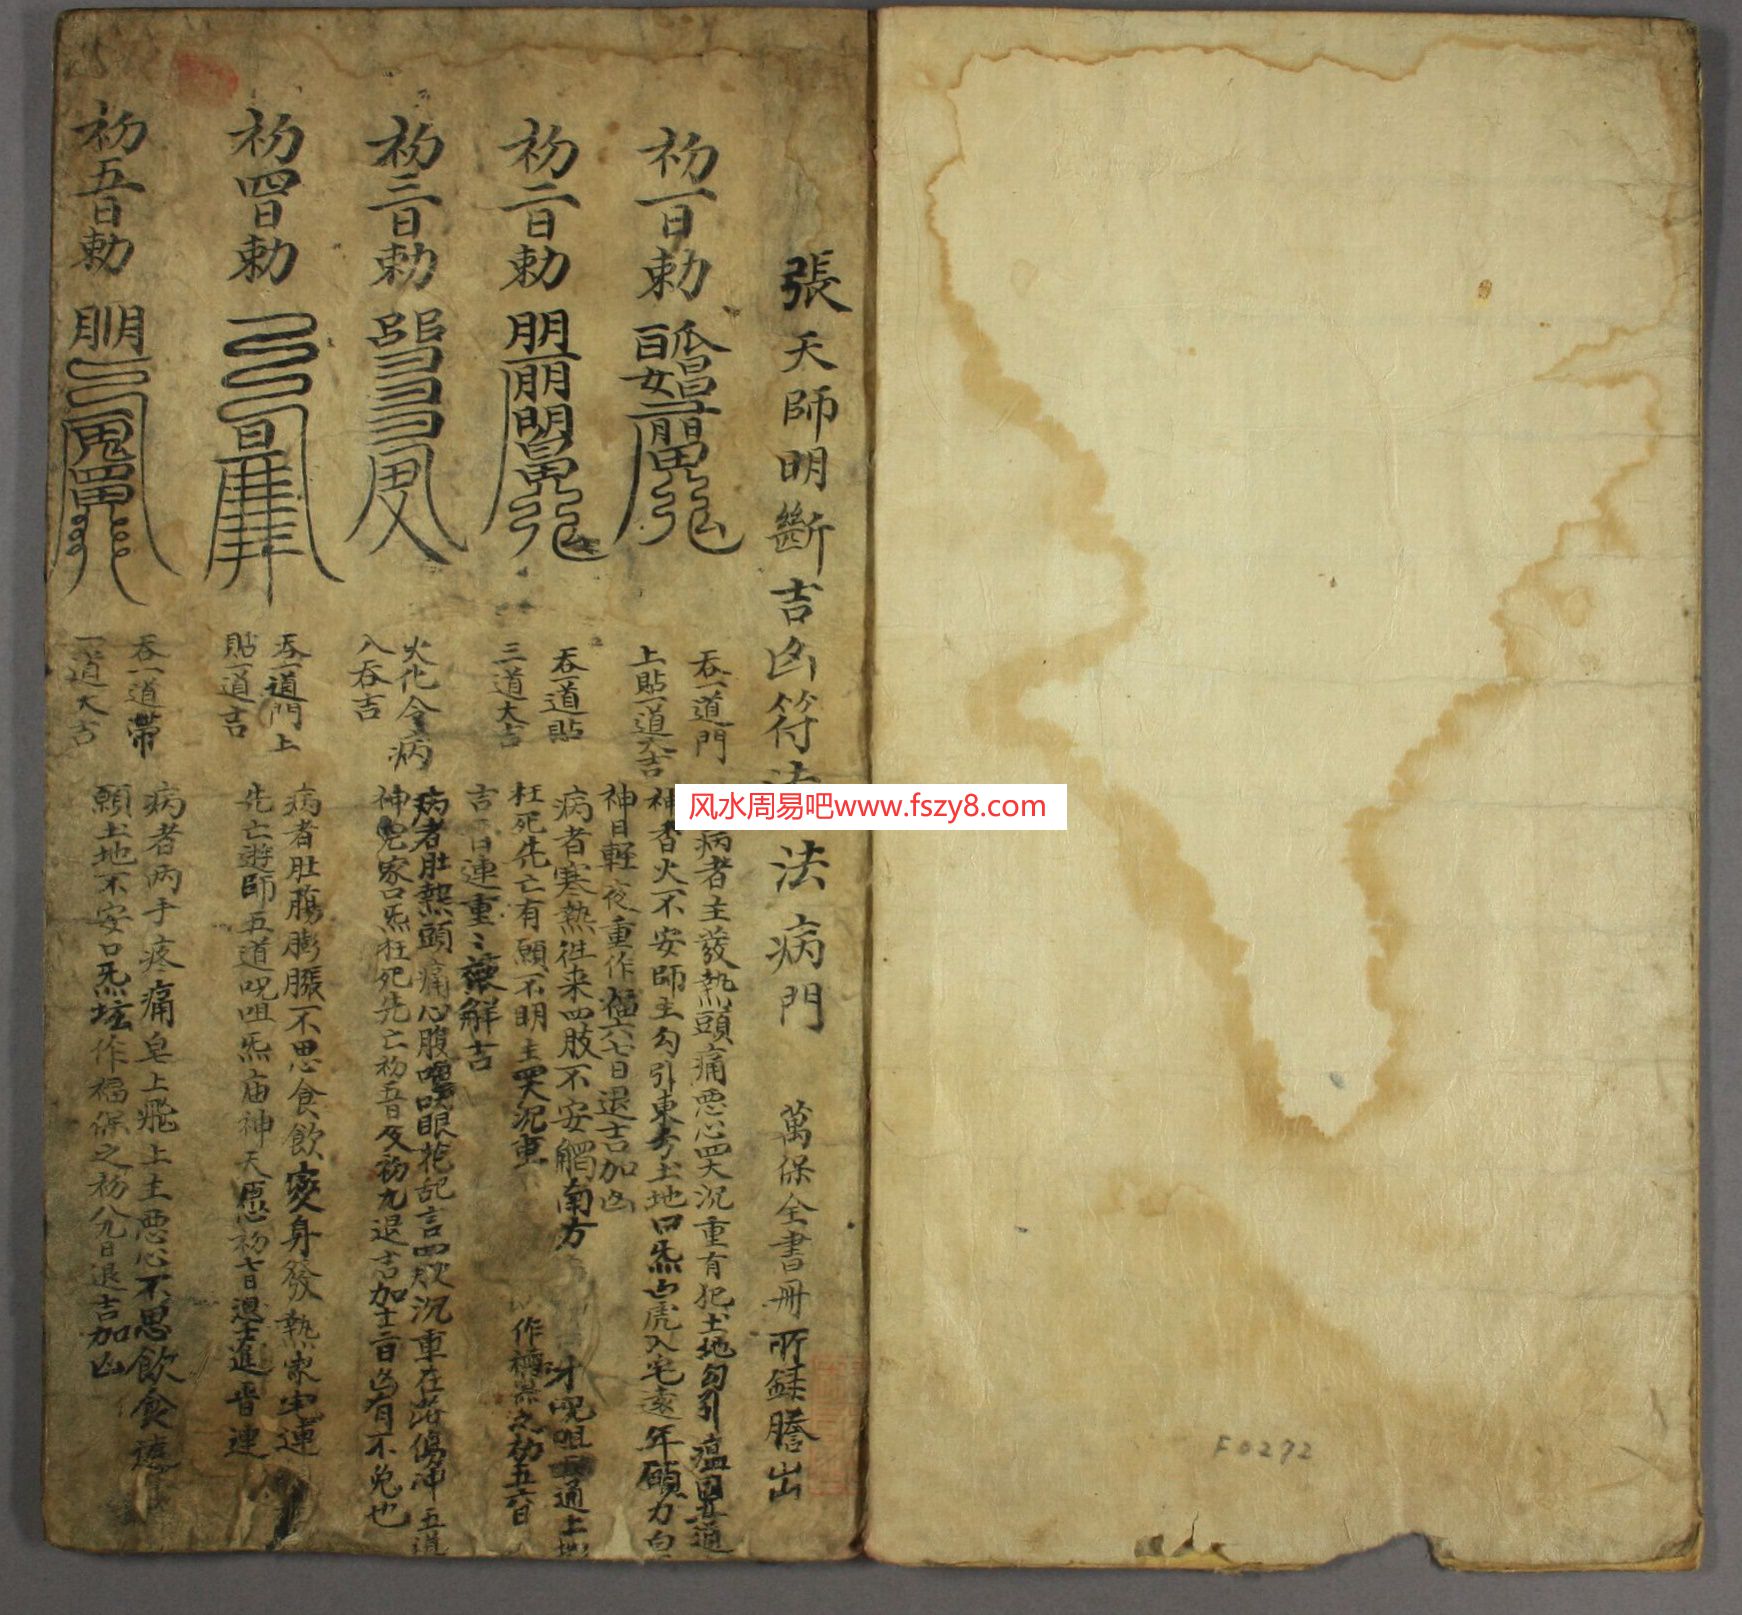 張天師明斷吉凶符法法病門 萬保全書冊所錄謄出
初一日勅
吞一道門
上貼一道大吉
病者主發熱頭痛惡心四大沉重有犯土地勾引瘟司五道
神香火不安師主勾引東方土地口炁白虎入宅遠年願力白
神日輕夜重作福六七日退吉加凶
初二日勅
吞一道貼
三道大吉
病者寒熱往来四肢不安觸南方
才呪咀通上
枉死先亡有願不明主四大沉重 作福保之初五六日
吉 日連重〻禳解吉
初三日勅
火化令病
人吞吉
病者肚熱頭痛心腹眼花乱言四肢沉重在路傷冲五道
神鬼家口炁枉死先亡初五日反初九退吉加十二日凶有不免也
初四日勅
吞一道門上
貼一道吉
病者肚腸膨脹不思食飲変身發熱家宅連
先亡遊師五道呪咀炁庙神天愿初七日退士進晋連
初五日勅
吞一道帶
一道大吉
病者兩手疼痛皂上飛上土惡心不思飲食遠
願土地不安口炁坛作福保之初八九日退吉加凶
风水周易吧www.fszy8.com
F0272